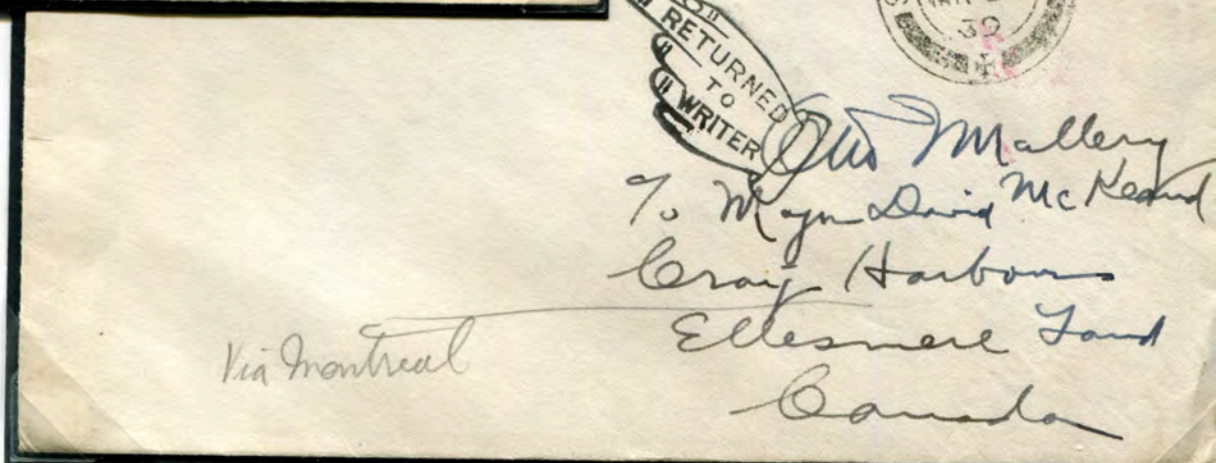 39
RETURNED
TO
WRITER
Otto Mallery
c/o Major David McKeand
Craig Harbour
Ellesmere Land
Canada
Via Montreal